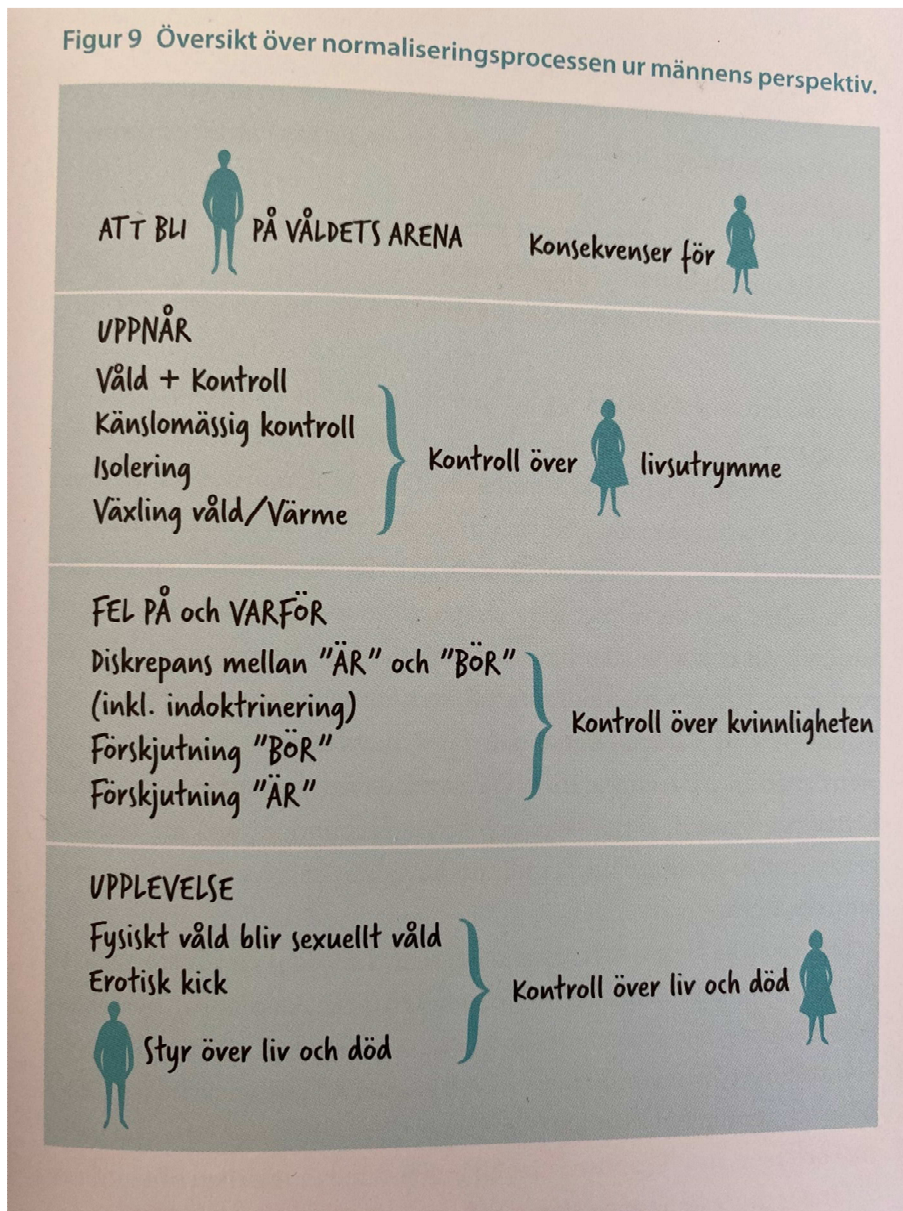 Figur 9 Översikt över normaliseringsprocessen ur männens perspektiv.
ATT BLI PÅ VÅLDETS ARENA
Konsekvenser för
UPPNÅR
Våld + Kontroll
Känslomässig kontroll
Isolering
Växling våld/Värme
Kontroll över livsutrymme
FEL PÅ och VARFÖR
Diskrepans mellan ”ÄR” och ”BÖR”
(inkl. indoktrinering)
Förskjutning ”BÖR”
Förskjutning ”ÄR”
Kontroll över kvinnligheten
UPPLEVELSE
Fysiskt våld blir sexuellt våld
Erotisk kick
Styr över liv och död
Kontroll över liv och död